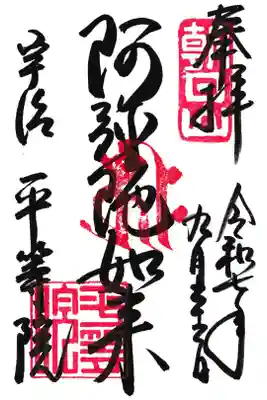 奉拝
朝日山
令和七年
九月
阿弥陀如来
宇治 平等院